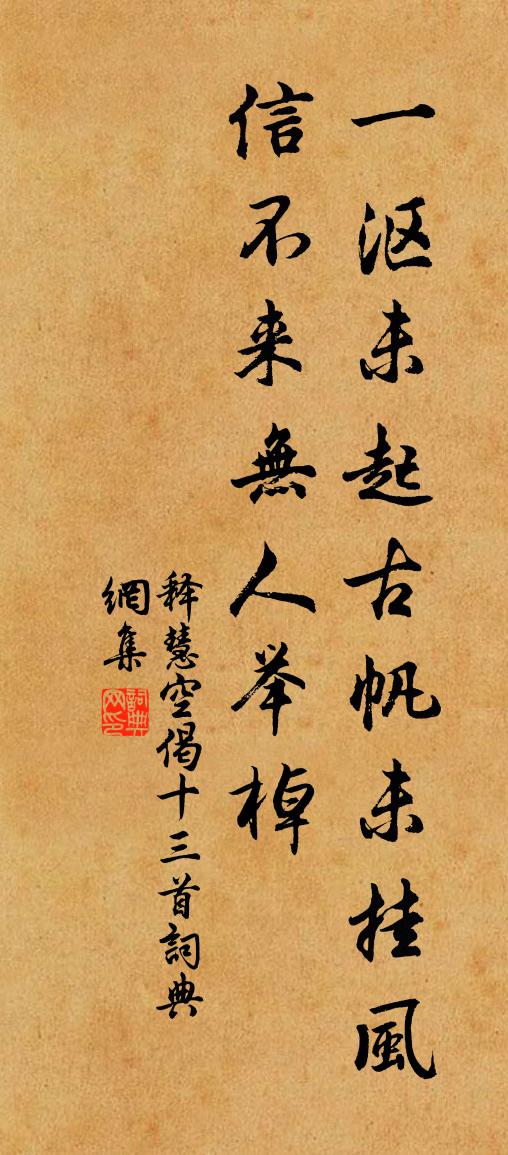 一沤未起古帆未挂風
信不来無人举棹
释慧空偈十三首詞典
網集
詞典
网印